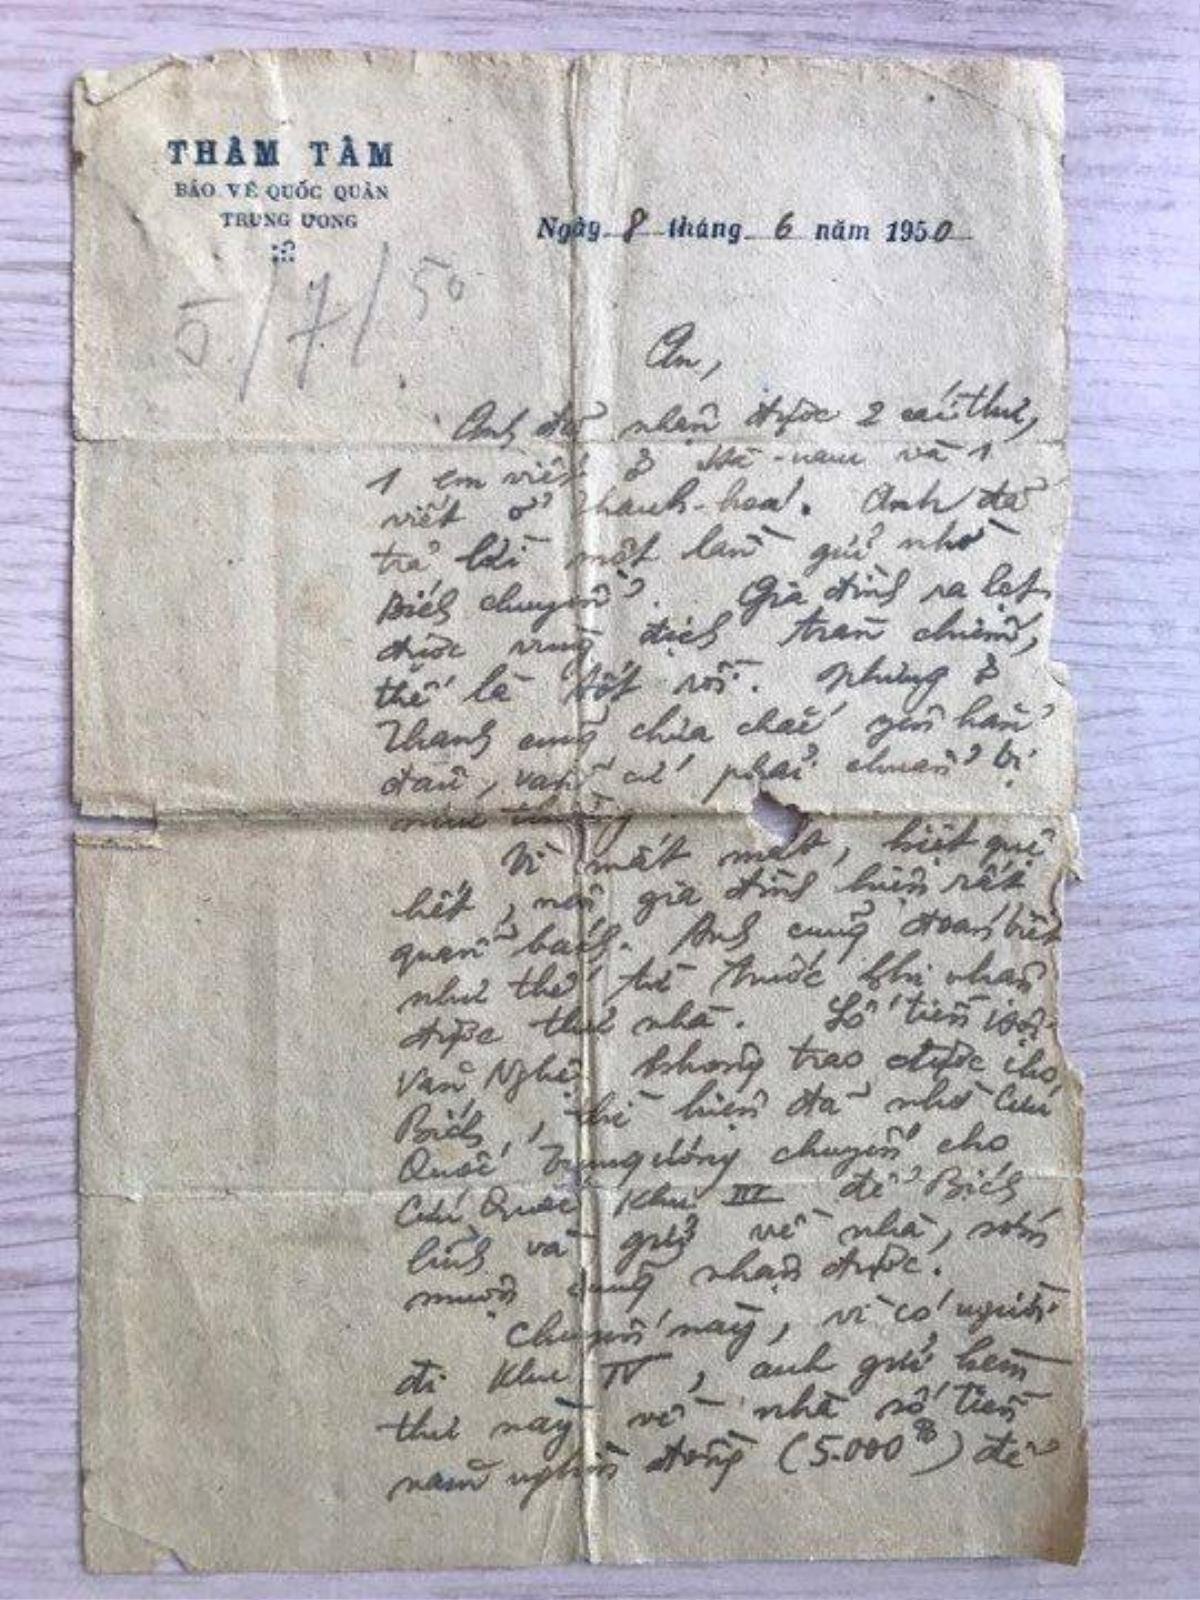 THÂM TÂM
BẢO VỆ QUỐC QUÂN
TRUNG ƯƠNG
Ngày 8 tháng 6 năm 1950
5/7/50
An,
Anh đã nhận được 2 cái thư,
1 em viết ở Hà-nam và 1
viết ở Thanh-hoá. Anh đã
trả lời một lần gửi nhờ
Bích chuyển. Gia đình ra lọt
được vùng địch tràn chiếm,
thế là tốt rồi. Nhưng ở
Thanh cũng chưa chắc yên hẳn
đâu, vẫn cứ phải chuẩn bị
như thường
Vì mất mát, kiệt quệ
hết, nên gia đình hiện rất
quẫn bách. Anh cũng đoán biết
như thế từ trước khi nhận
được thư nhà. Số tiền
Văn Nghệ, không trao được cho
Bích, thì hiện đã nhờ Cứu
Quốc Trung ương chuyển cho
Cứu Quốc Khu III để Bích
lĩnh và gửi về nhà, sớm
muộn cũng nhận được.
Chuyến này, vì có người
đi Khu IV, anh gửi kèm
thư này về nhà số tiền
năm nghìn đồng (5.000đ) để